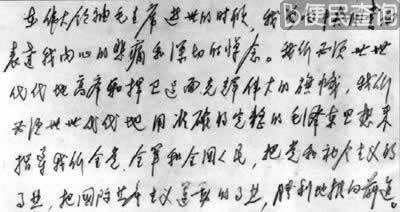 便民查询
在伟大领袖毛主席逝世的时候,我
表达我内心的悲痛和深切的悼念。我们必须世世
代代地高举和捍卫这面光辉伟大的旗帜,我们
必须世世代代地用准确的完整的毛泽东思想来
指导我们全党、全军和全国人民,把党和社会主义的
事业,把国际共产主义运动的事业,胜利地推向前进。